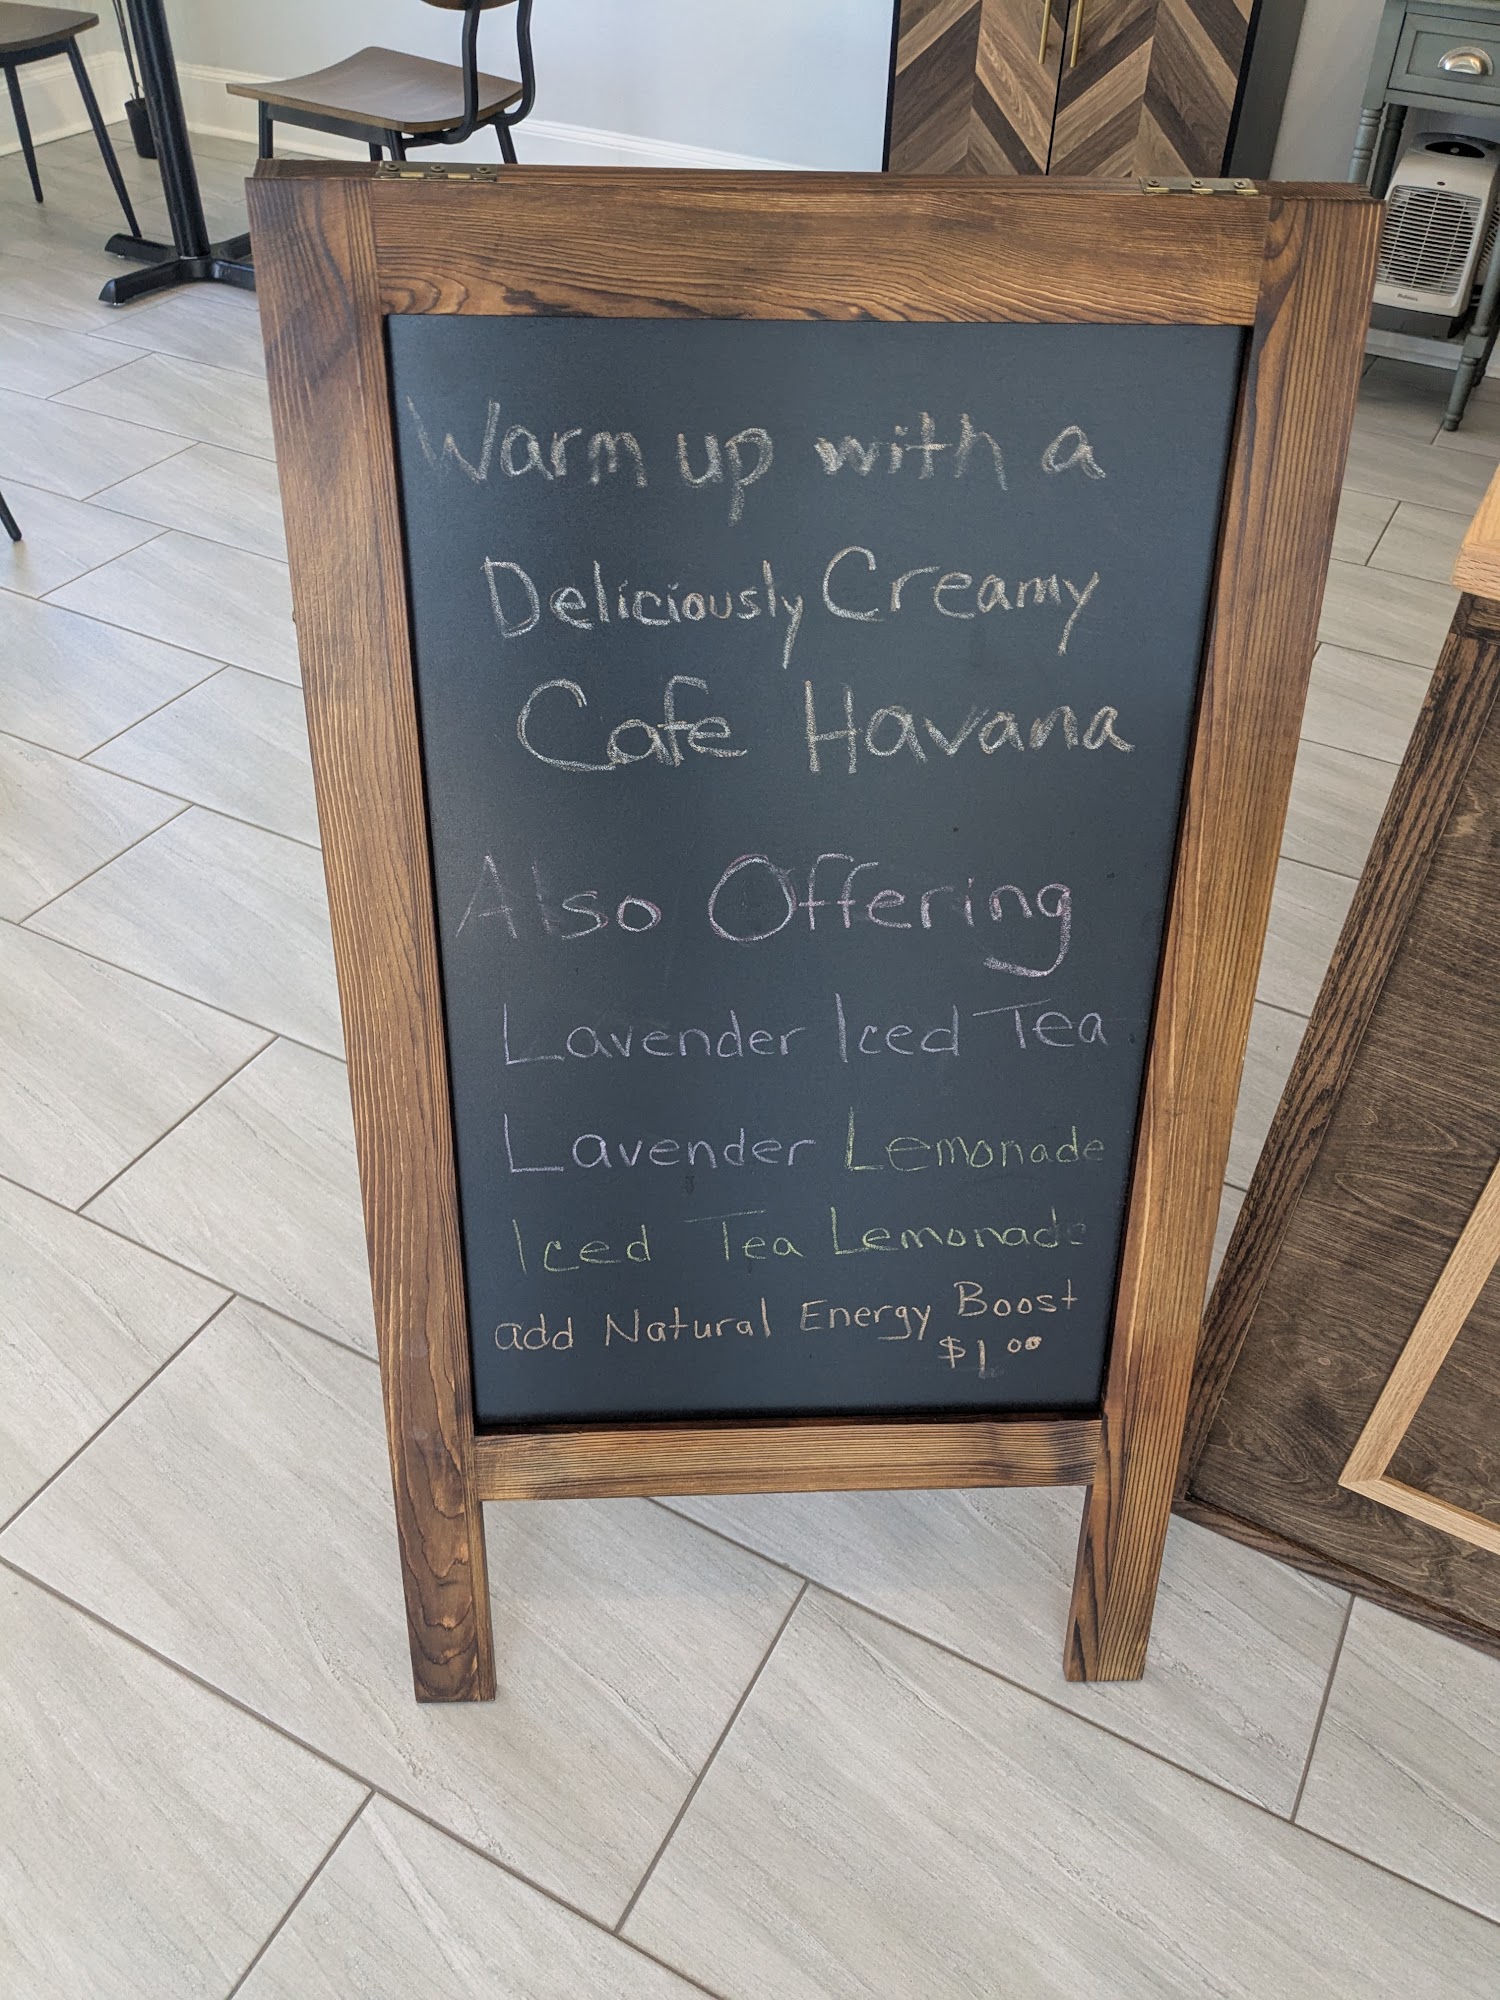 Warm up with a
Deliciously Creamy
Cafe Havana
Also Offering
Lavender Iced Tea
Lavender Lemonade
Iced Tea Lemonade
add Natural Energy Boost
$1.00